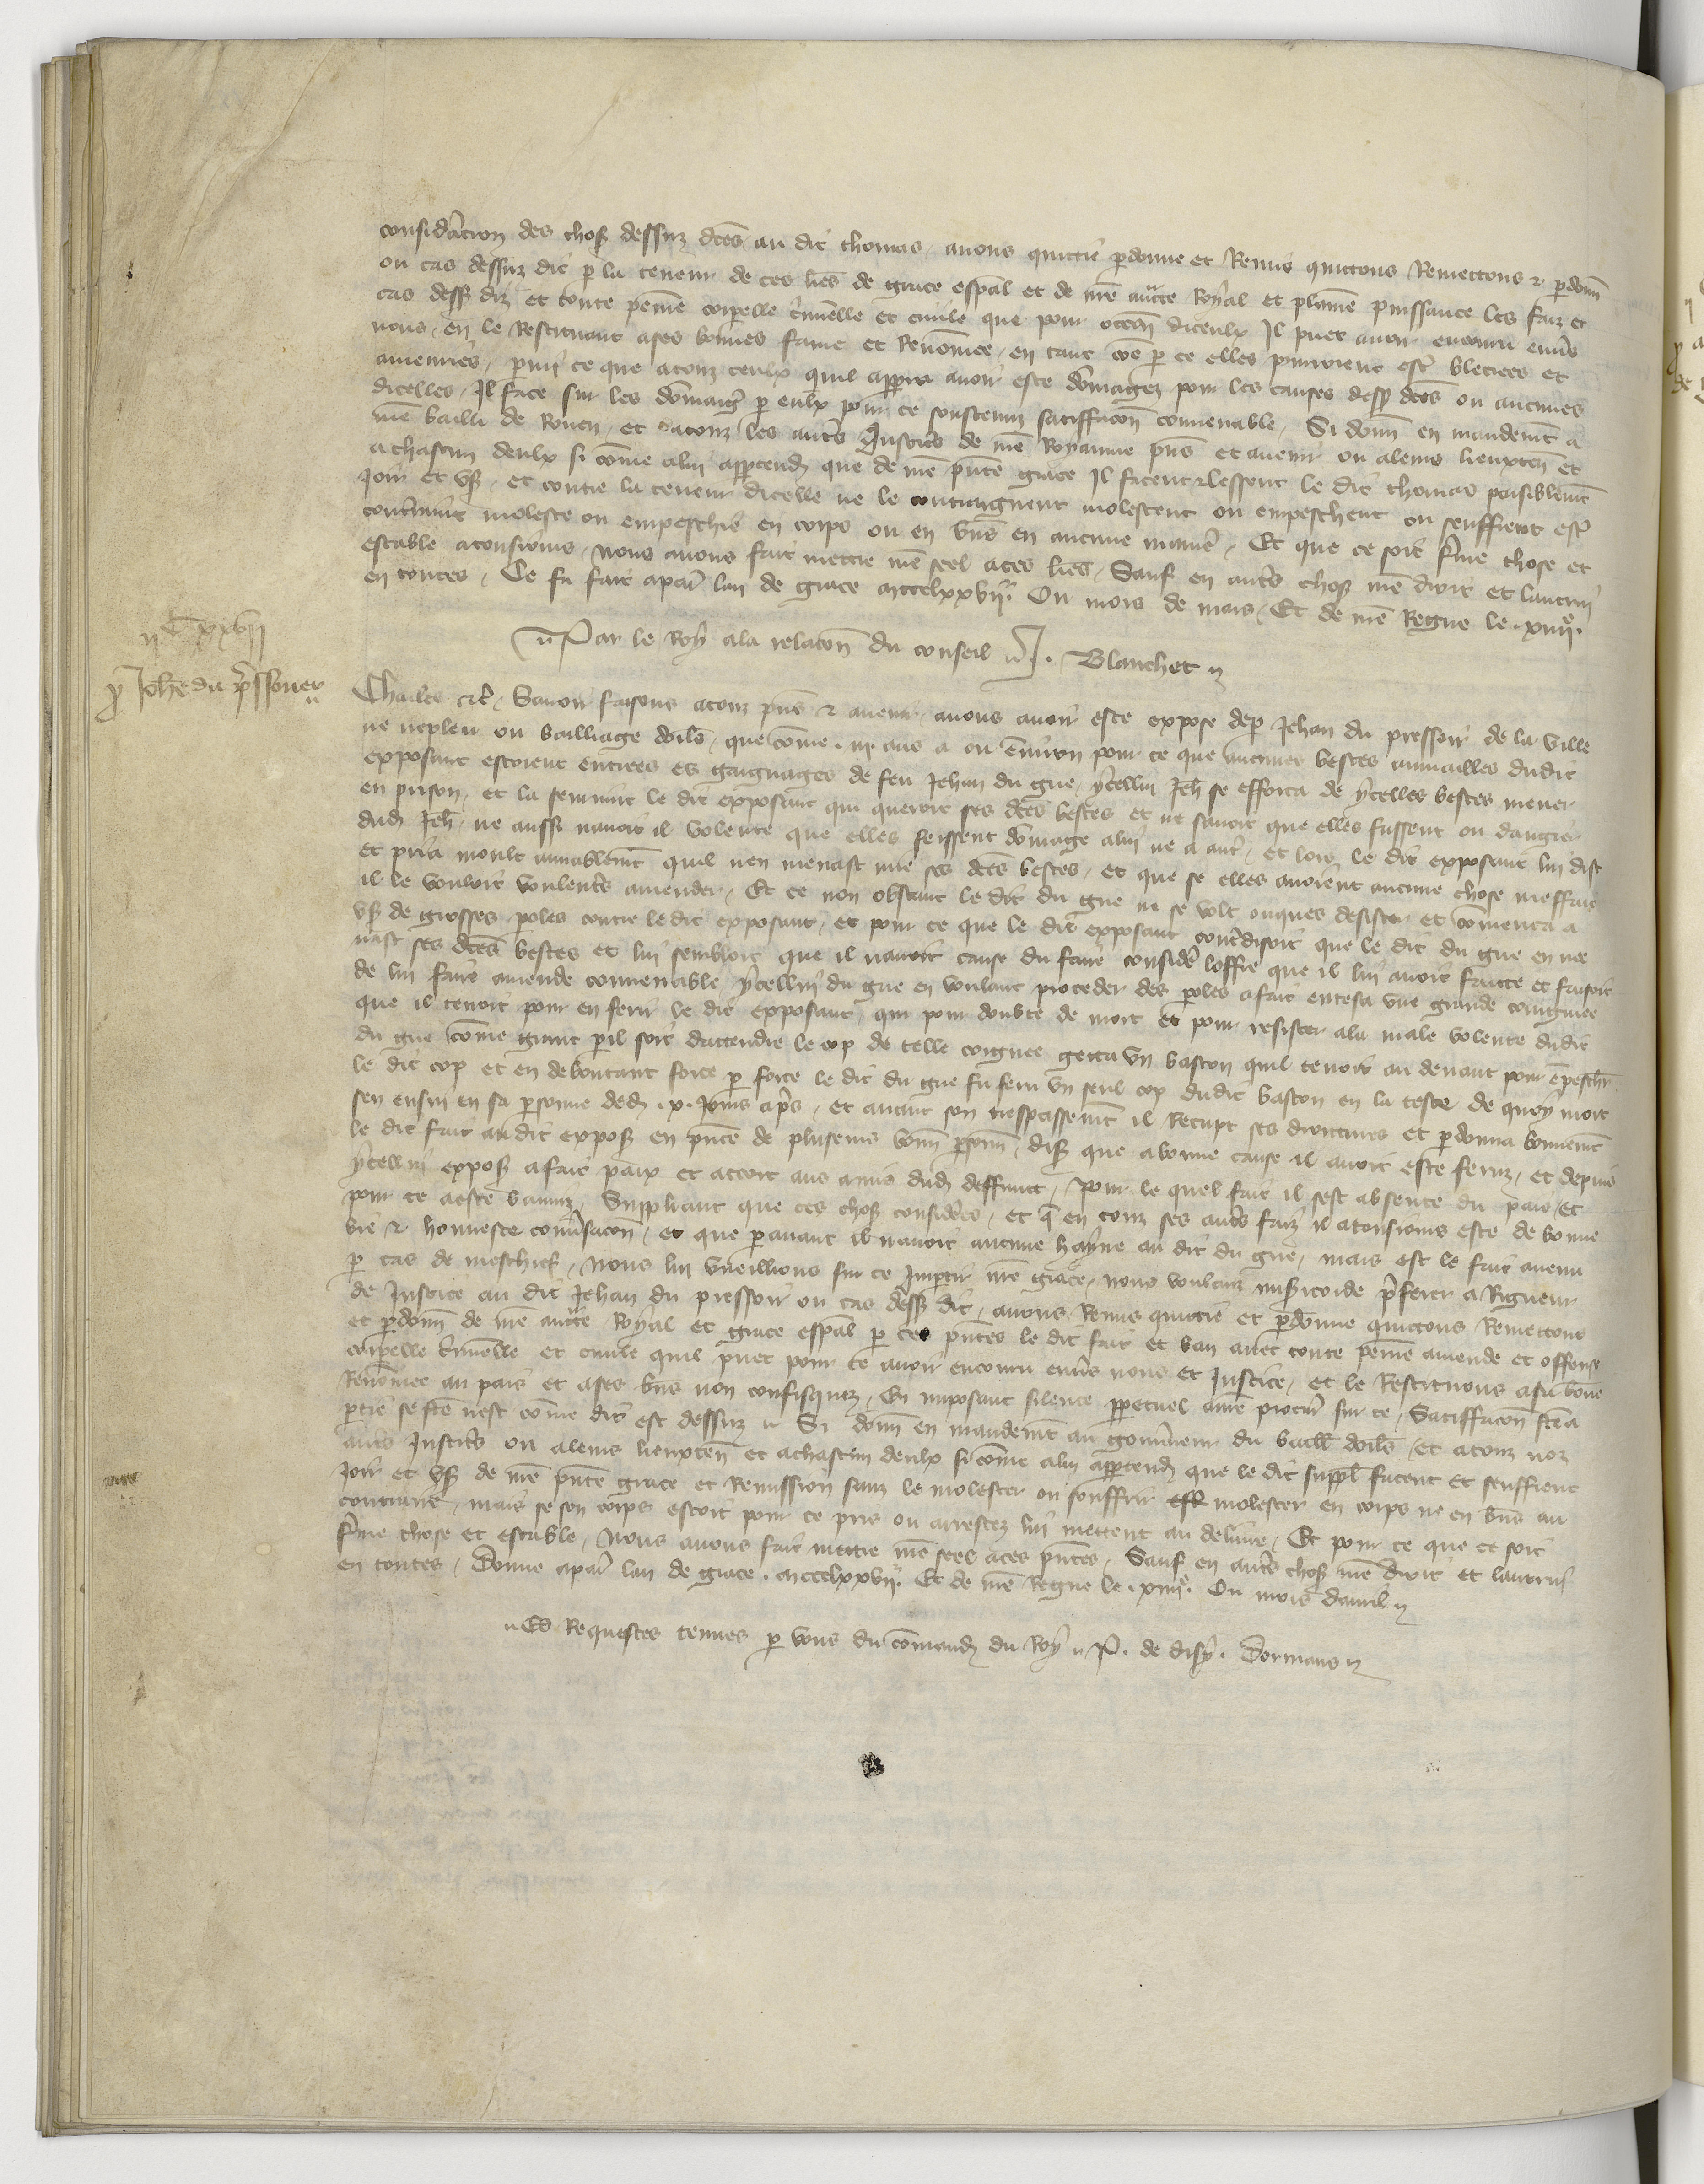 considacion des chos dessuz dces au dit thomas avons quittie pdonne et Remis quittons Remettons & pdonn
ou cas dessuz dit p la teneur de ces lres de grace espal et de nre aucte Royal et plaine puissance les faiz et
cas dess diz et toute peine corpelle criminelle et civile que pour occon diceulx Il puet avoir encouru envs
nous en le Restituant a ses bonnes fame et Renommee en tant coe p ce elles pourroient estre bleciees et
amenries pmi ce que a touz ceulx quil apprra avoir este domagiez pour les causes desp dces ou aucunes
dicelles Il face sur les domaiges p eulx pour ce soustenuz satiffacon convenable Si donn en mandemt a
nre bailli de Rouen et a touz les autres Justiciers de nre Royaume pns et avenir ou a leurs lieuxten et
a chascun deulx si come a lui apptendra que de nre pnte grace Il facent & lessent le dit thomas paisiblemt
Joir et us et contre la teneur dicelle ne le contraignent molestent ou empeschent ou seuffrent estre
contraint moleste ou empeschie en corps ou en biens en aucune maniere Et que ce soit ferme chose et
estable a tousjours nous avons fait mettre nre seel a ces lres Sauf en autres chos nre droit et lautrui
en toutes Ce fu fait a par lan de grace mccclxxvii Ou mois de mars Et de nre Regne le xiiii e
Par le Roy a la relacon du conseil J. Blanchet
ii C xxvii
p Johe du pressouer
Charles &c Savoir faisons a touz pns & avenir a nous avoir este expose dep Jehan du pressoir de la ville
de ou bailliage dorls que come iii ans a ou environ pour ce que aucunes bestes aumailles dudit
exposant estoient entrees es gaignages de feu Jehan du gue ycellui Jeh se efforca de ycelles bestes mener
en prison et la seurvint le dit exposant qui queroit ses dces bestes et ne savoit que elles fussent ou dangier
dud Jeh ne aussi navoit il volente que elles feissent domage a lui ne a autre et lors le dit exposant lui dist
et pria moult amiablemt quil nen menast mie ses dces bestes et que se elles avoient aucune chose meffait
il le vouloit voulentiers amender Et ce non obstant le dit du gue ne se volt onques desister et comenca a
us de grosses poles contre le dit exposant et pour ce que le dit exposant contredisoit que le dit du gue en me
nast ses dces bestes et lui sembloit que il navoit cause du faire consider loffre que il lui avoit faitte et faisoit
de lui faire amende convenable ycellui du gue en voulant proceder des poles a fait entesa une grande coignee
que il tenoit pour en ferir le dit exposant qui pour doubte de mort et pour resister a la male volente dudit
du gue come grant pil soit dattendre le cop de telle coignee getta un baston quil tenoit au devant pour empeschr
le dit cop et en deboutant force p force le dit du gue fu feru un seul cop dudit baston en la teste de quoy mort
sen ensui en sa psonne ded x Jours aprs et avant son trespassemt il Recupt ses droitures et pdonna bonnemt
le dit fait au dit expos en pnce de pluseurs bonn psonn dis que a bonne cause il avoit este feruz et depuis
ycellui expos a fait paix et accort aus amis dud deffunct Pour le quel fait il sest absente du pais et
pour ce a este banniz Suppliant que ces chos consideres et q en touz ses autres faiz il a tousjours este de bonne
vie & honneste convsacon et que pavant il navoit aucune hayne au dit du gue mais est le fait avenu
p cas de meschief nous lui vueillions sur ce Impartir nre grace nous voulanz misericorde preferer a Rigueur
de Justice au dit Jehan du pressoir ou cas dess dit avons Remis quittie et pdonne quittons Remettons
et pdonn de nre aucte Royal et grace espal p ces pntes le dit fait et ban avec toute peine amende et offense
corpelle criminelle et civile quil puet pour ce avoir encouru envers nous et Justice et le Restituons a sa bonne
Renomee au pais et a ses bns non confisquez En imposant silence ppetuel a nre procur sur ce Satiffacon fte a
ptie se fte nest come dit est dessuz Si donn en mandemt au gouverneur du baill dorls et a touz noz
autres Justiciers ou a leurs lieuxten et a chascun deulx si come a lui apptendra que le dit suppl facent et seuffrent
Joir et us de nre pnte grace et Remission sanz le molester ou souffrir estre molester en corps ne en bns au
contraire mais se son corps estoit pour ce pris ou arrestez lui mettent au delivre Et pour ce que ce soit
ferme chose et estable Nous avons fait mettre nre seel a ces pntes Sauf en autres chos nre droit et lautrui
en toutes Donne a par lan de grace mccclxxvii Et de nre Regne le xiiii e Ou mois davril
Es Requestes tenues p vous du comand du Roy P. de disy. Dormans